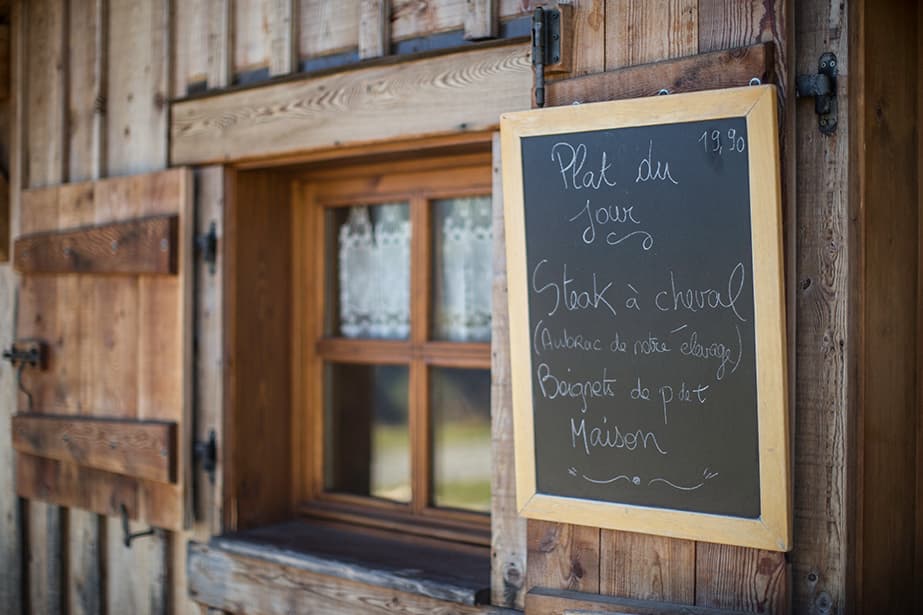 19,90
Plat du
jour
Steak à cheval
(Aubrac de notre élevage)
Beignets de p de t
Maison